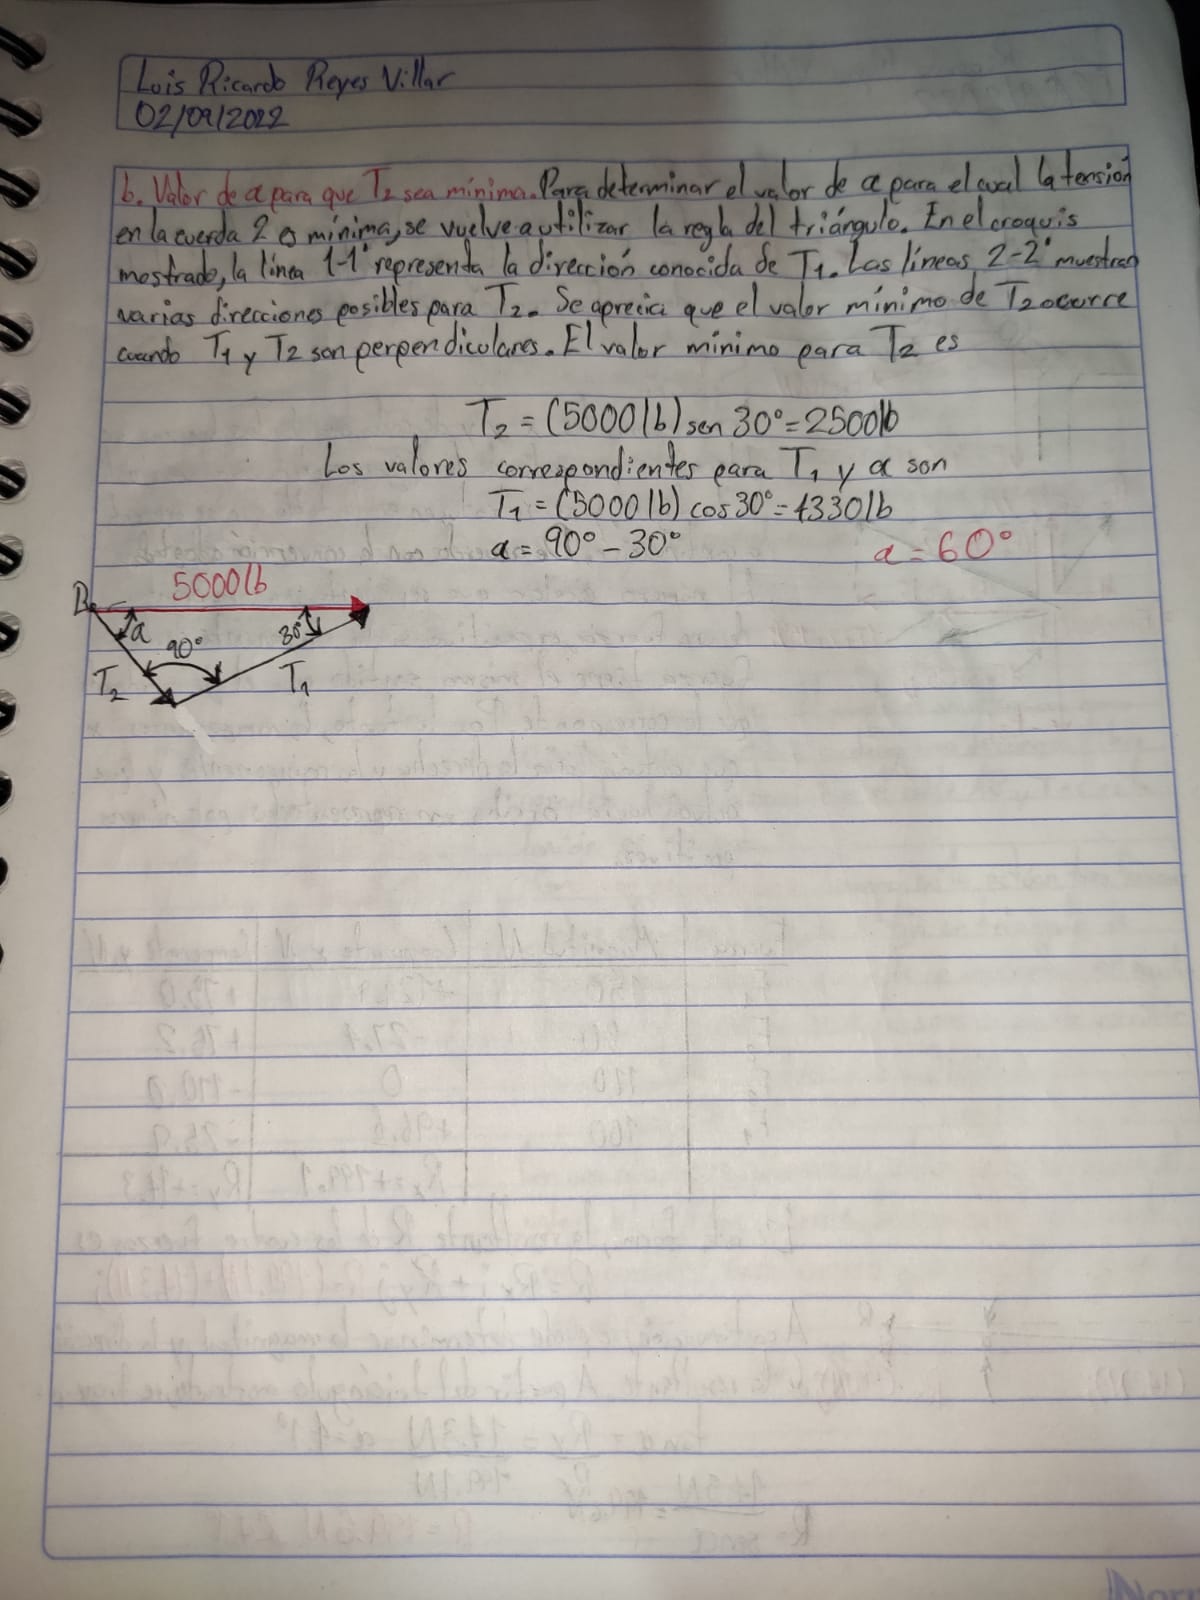 Luis Ricardo Reyes Villar
02/09/2022
b. Valor de α para que T2 sea mínima. Para determinar el valor de α para el cual la tensión
en la cuerda 2 es mínima, se vuelve a utilizar la regla del triángulo. En el croquis
mostrado, la línea 1-1' representa la dirección conocida de T1. Las líneas 2-2' muestran
varias direcciones posibles para T2. Se aprecia que el valor mínimo de T2 ocurre
cuando T1 y T2 son perpendiculares. El valor mínimo para T2 es
T2 = (5000 lb) sen 30° = 2500 lb
Los valores correspondientes para T1 y α son
T1 = (5000 lb) cos 30° = 4330 lb
α = 90° - 30° α = 60°
5000 lb
α 90° 30°
T2 T1